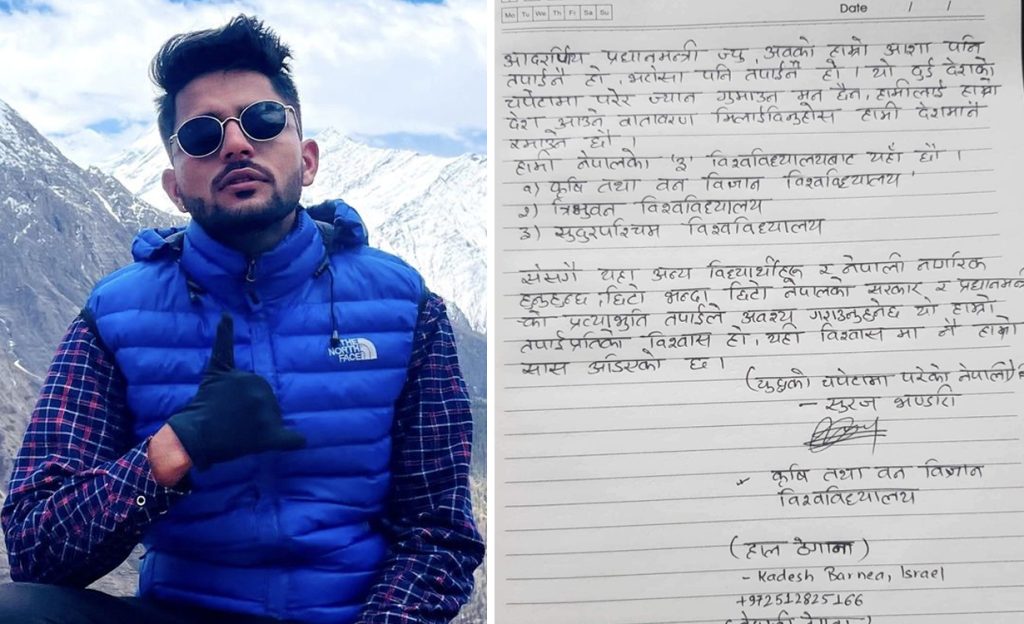 THE
NORTH
FACE
Mo Tu We Th Fr Sa Su
Date / /
आदरणिय प्रधानमन्त्री ज्यु, अबको हाम्रो आशा पनि
तपाईनै हो, भरोसा पनि तपाईनै हो । यो दुई देशको
चपेटामा परेर ज्यान गुमाउन मन छैन, हामीलाई हाम्रो
देश आउने वातावरण मिलाईदिनुहोस हामी देशमानै
रमाउने छौ ।
हामी नेपालका '३' विश्वविद्यालयबाट यहाँ छौ ।
१) कृषि तथा वन विज्ञान विश्वविद्यालय
२) त्रिभुवन विश्वविद्यालय
३) सुदुरपश्चिम विश्वविद्यालय
सँसगै यहा अन्य विद्यार्थीहरू र नेपाली नागरिक
हुनुहुन्छ, छिटो भन्दा छिटो नेपालको सरकार र
को प्रत्याभुति तपाईले अवश्य गराउनुहुनेछ यो हाम्रो
तपाईप्रतिको विश्वास हो, यही विश्वास मा नै हाम्रो
सास अडिएको छ ।
(युद्धको चपेटामा परेको
- सुरज भण्डारी
कृषि तथा वन विज्ञान
विश्वविद्यालय
(हाल ठेगाना)
- Kadesh Barnea, Israel
+972512825166